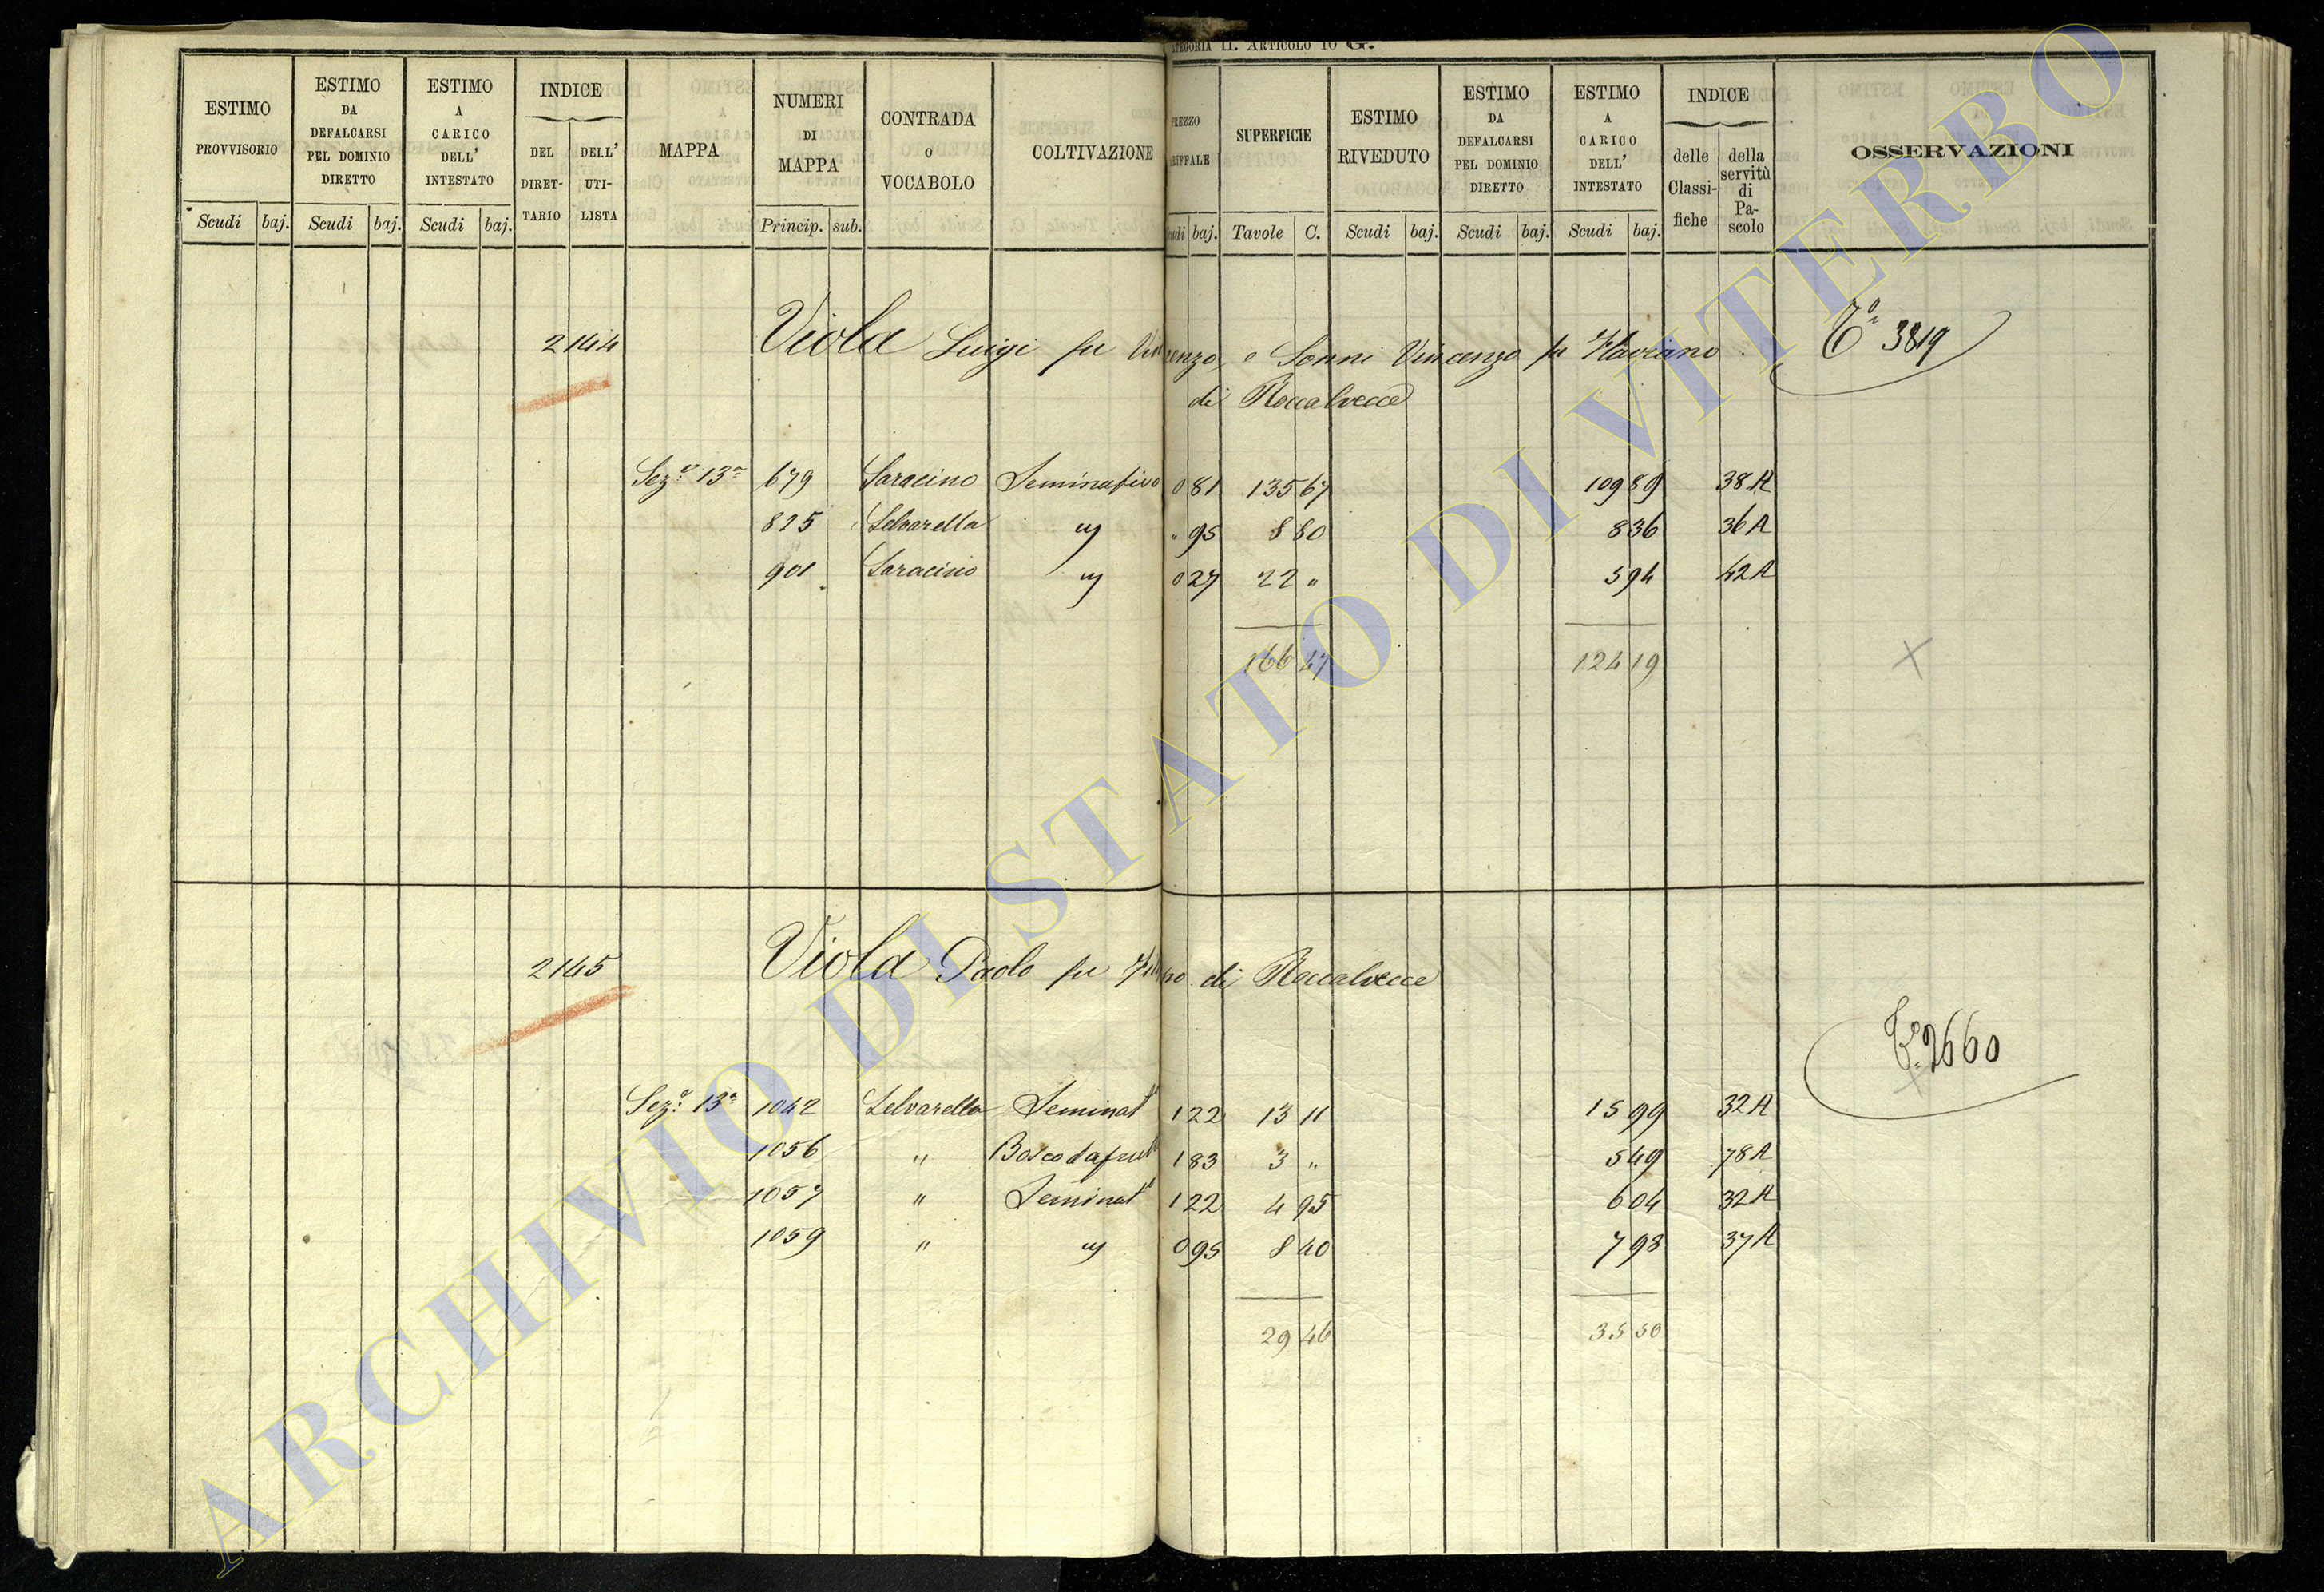 ATEGORIA II. ARTICOLO 10 G.
ESTIMO PROVVISORIO Scudi baj.
ESTIMO DA DEFALCARSI PEL DOMINIO DIRETTO Scudi baj.
ESTIMO A CARICO DELL' INTESTATO Scudi baj.
INDICE DEL DIRET-TARIO DELL' UTI-LISTA
MAPPA
NUMERI DI MAPPA Princip. sub.
CONTRADA O VOCABOLO
COLTIVAZIONE
REZZO RIFFALE udi baj.
SUPERFICIE Tavole C.
ESTIMO RIVEDUTO Scudi baj.
ESTIMO DA DEFALCARSI PEL DOMINIO DIRETTO Scudi baj.
ESTIMO A CARICO DELL' INTESTATO Scudi baj.
INDICE delle Classi-fiche della servitù di Pa-scolo
OSSERVAZIONI
2144 Viola Luigi fu Vincenzo, e Sonni Vincenzo fu Flaviano 3819
di Roccalvecce
Sez.e 13a 679 Saracino Seminativo 0 81 135 67 109 89 38 A
825 Selvarella " " 95 8 80 8 36 36 A
901 Saracino " 0 27 22 " 5 94 42 A
166 47 124 19
2145 Viola Paolo fu di Roccalvecce
2660
Sez.e 13a 1042 Selvarella Seminat° 1 22 13 11 15 99 32 A
1056 " Bosco da 1 83 3 " 5 49 78 A
1057 " Seminat° 1 22 4 95 6 04 32 A
1059 " " 0 95 8 40 7 98 37 A
29 46 35 50
ARCHIVIO DI STATO DI VITERBO